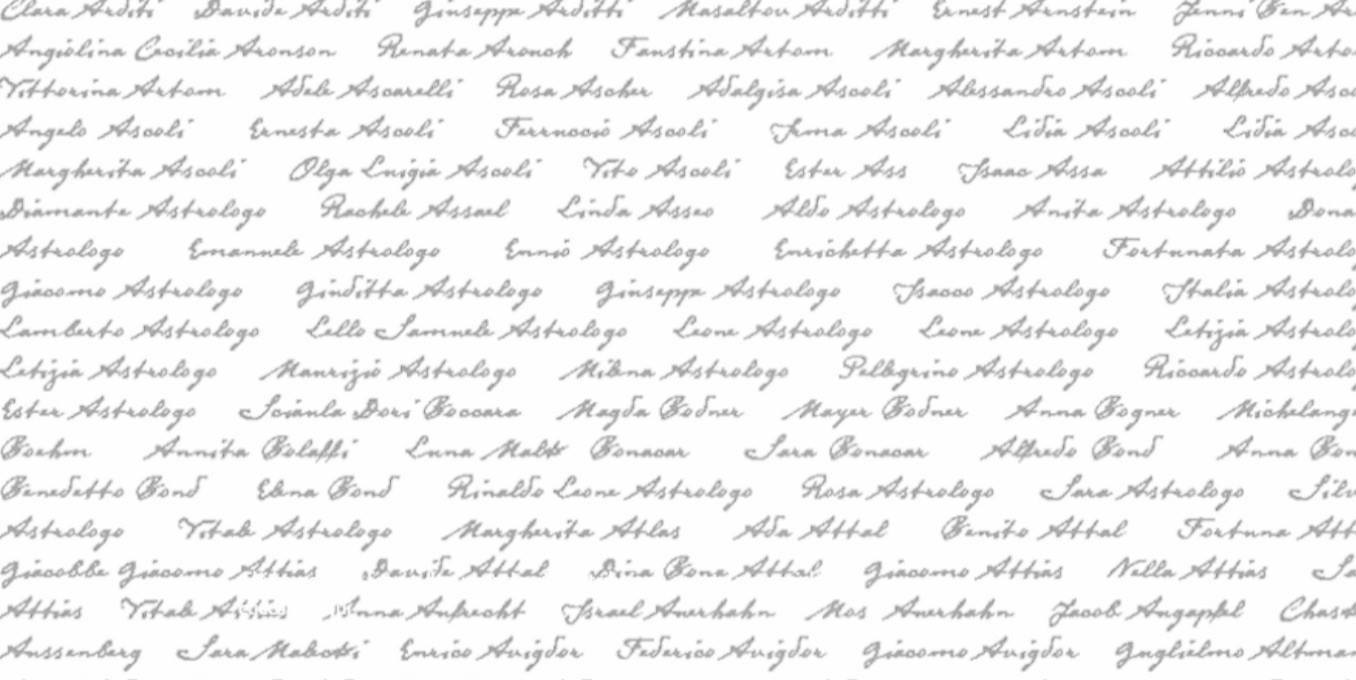 Clara Arditi Davide Arditi Giuseppe Arditti Masaltou Arditti Ernest Arnstein Jenni Ben
Angiolina Cecilia Aronson Renata Arouch Faustina Artom Margherita Artom Riccardo
Vittorina Artom Adele Ascarelli Rosa Ascher Adalgisa Ascoli Alessandro Ascoli Alfredo
Angelo Ascoli Ernesta Ascoli Ferruccio Ascoli Irma Ascoli Lidia Ascoli Lidia
Margherita Ascoli Olga Luigia Ascoli Vito Ascoli Ester Ass Isaac Assa Attilio Astrolo
Diamante Astrologo Rachele Assael Linda Asseo Aldo Astrologo Anita Astrologo Dona
Astrologo Emanuele Astrologo Ennio Astrologo Enrichetta Astrologo Fortunata Astrolo
Giacomo Astrologo Giuditta Astrologo Giuseppe Astrologo Isacco Astrologo Italia Astrolo
Lamberto Astrologo Lello Samuele Astrologo Leone Astrologo Leone Astrologo Letizia Astrolo
Letizia Astrologo Maurizio Astrologo Milena Astrologo Pellegrino Astrologo Riccardo Astrolo
Ester Astrologo Sciaula Dori Boccara Magda Bodner Mayer Bodner Anna Bogner Michelang
Boehm Annita Bolaffi Luna Bonacar Sara Bonacar Alfredo Bond Anna Bon
Benedetto Bond Elena Bond Rinaldo Leone Astrologo Rosa Astrologo Sara Astrologo Silv
Astrologo Vitale Astrologo Margherita Atlas Ada Attal Benito Attal Fortuna Att
Giacobbe Giacomo Attias Davide Attal Dina Bona Attal Giacomo Attias Nella Attias Sa
Attias Vitale Attias Anna Aufrecht Israel Auerhahn Mos Auerhahn Jacob Augapfel
Aussenberg Sara Enrico Avigdor Federico Avigdor Giacomo Avigdor Guglielmo